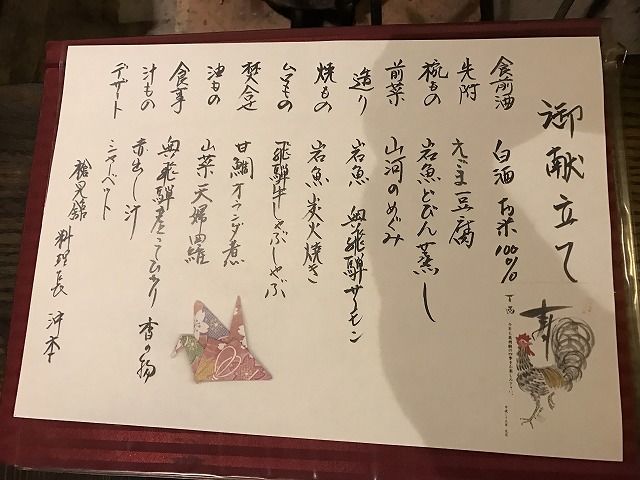 御献立て
食前酒 白酒 お米100%
先附 えごま豆腐
椀もの 岩魚どびん蒸し
前菜 山河のめぐみ
造り 岩魚 奥飛騨サーモン
焼もの 岩魚炭火焼き
飛騨牛しゃぶしゃぶ
焚合せ 甘鯛オランダ煮
油もの 山菜天婦羅
食事 奥飛騨産こしひかり 香の物
汁もの 赤出し汁
デザート シャーベット
槍見舘 料理長 沖本
寿
丁酉